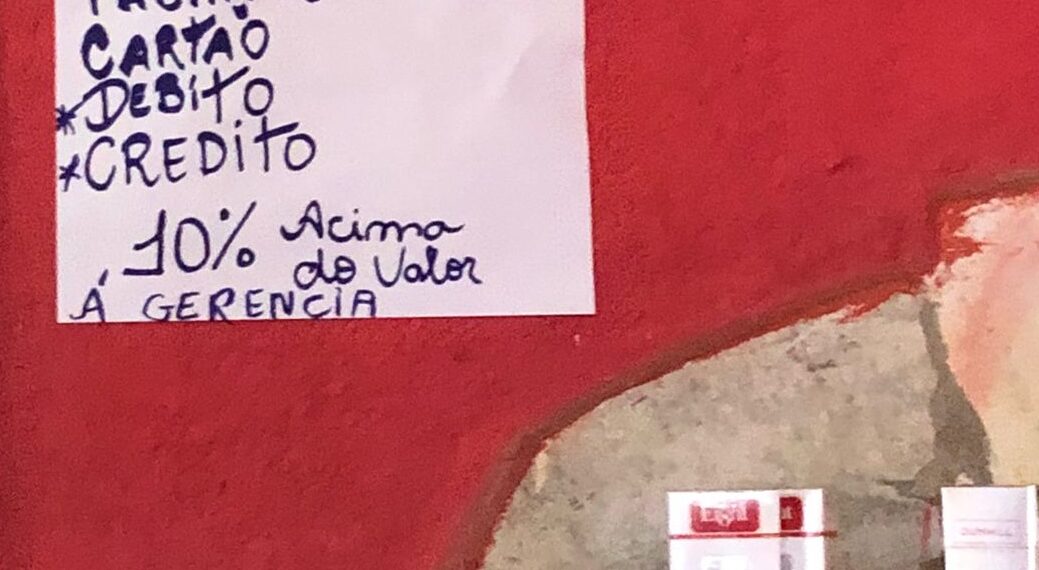 CARTAO
*DEBITO
*CREDITO
10% Acima
do Valor
Á GERENCIA